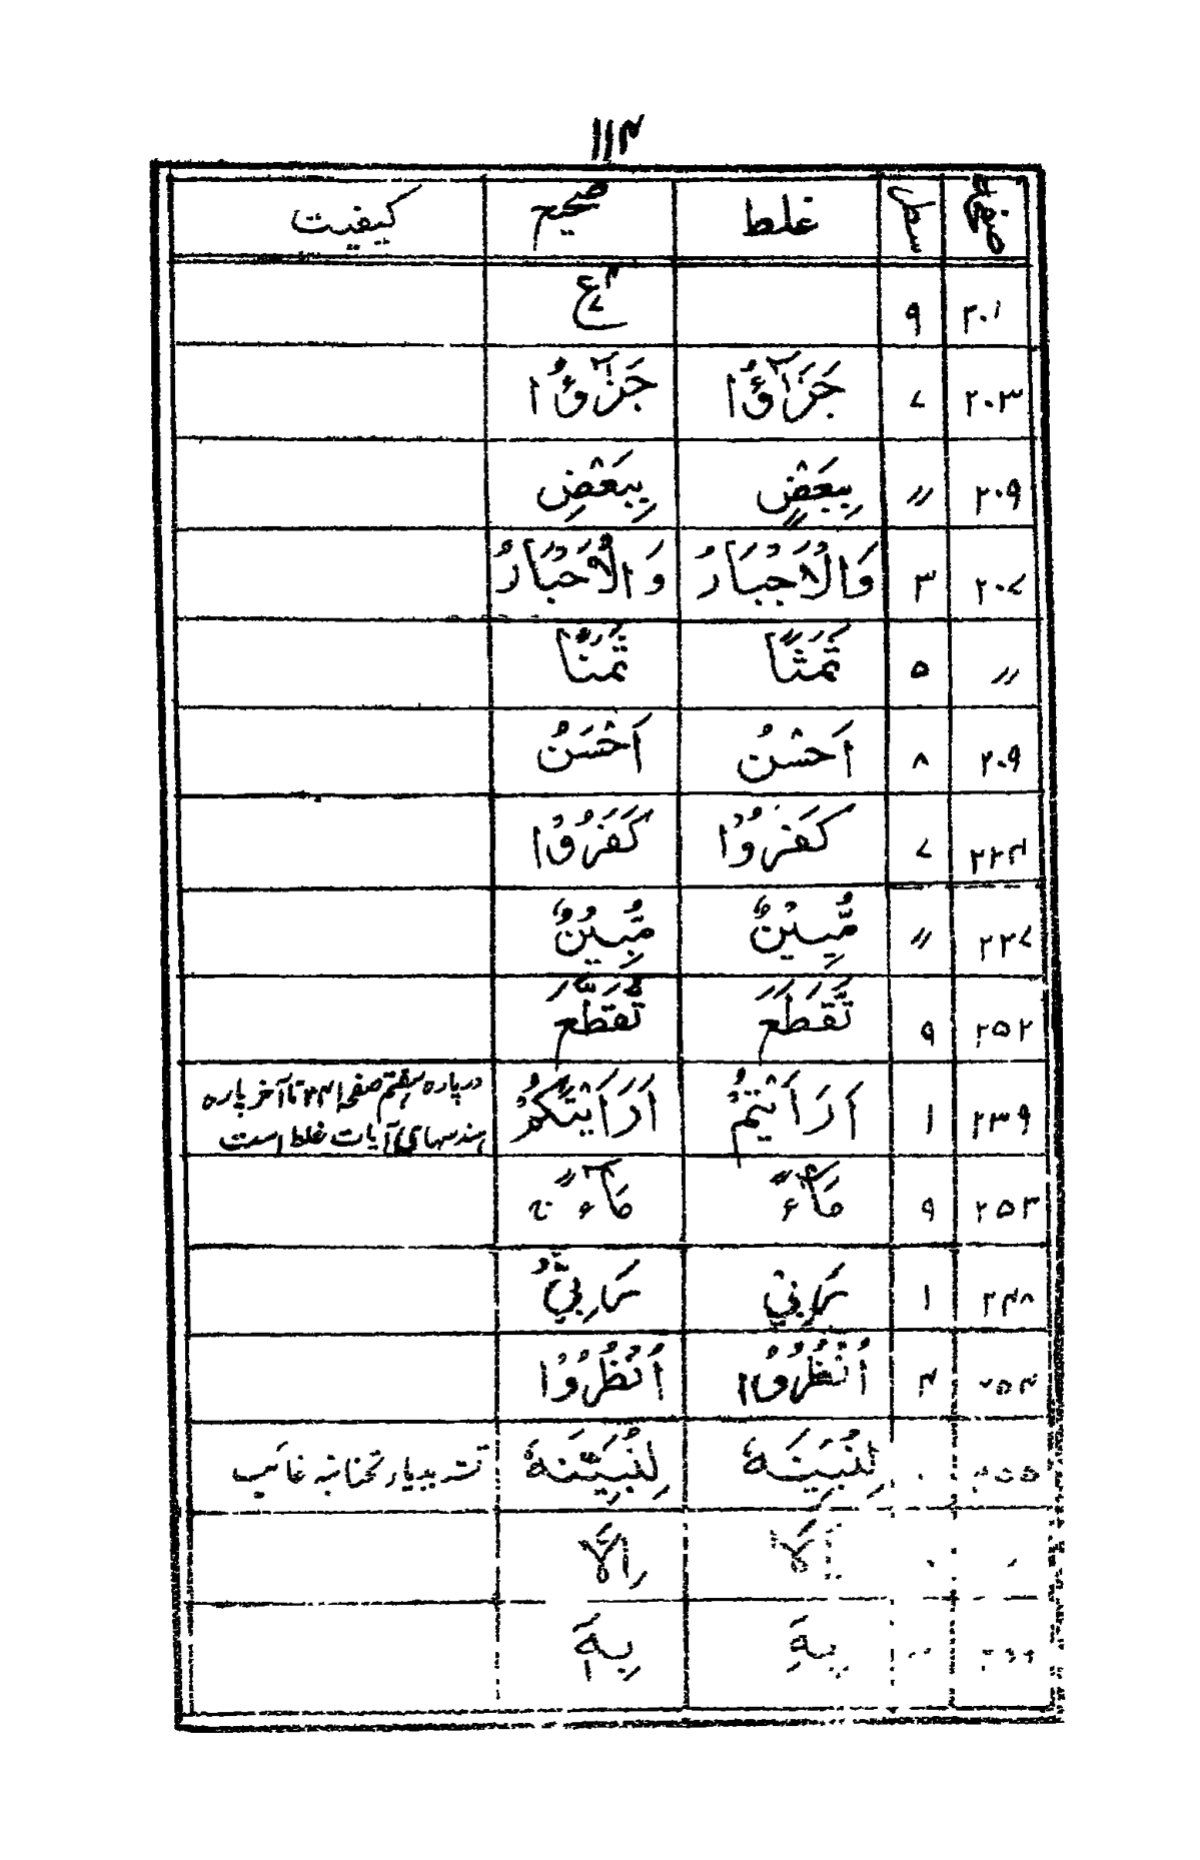 ۱۱۴
صفحه سطر غلط صحیح کیفیت
۲۰۱ ۹ ع
۲۰۳ ۷ جَزَآؤُا جَزَٰٓؤُا
۲۰۹ 〃 بِبَعْضٍ بِبَعْضِ
۲۰۷ ۳ وَالْاَحْبَارُ وَالْاَحْبَارُ
〃 ۵ ثَمَنًا ثَمَنًا
۲۰۹ ۸ اَحْسَنُ اَحْسَنُ
۲۲۴ ۷ كَفَرُوْا كَفَرُوْا
۲۲۷ 〃 مُّبِيْنٌ مُّبِيْنٌ
۲۵۲ ۹ تَّقَطَّعَ تَّقَطَّعَ
۲۳۹ ۱ اَرَاَيْتُمْ اَرَاَيْتَكُمْ درپاره هفتم صفحه ۲۴۱ تا آخر پاره
هندسهای آیات غلط است
۲۵۳ ۹ مَآءً مَآءً ج
۲۴۸ ۱ رَبِّيْ رَبِّيْ
۲۵۴ ۴ اُنْظُرُوْا اُنْظُرُوْا
۲۵۵ لِنُبَيِّنَهٗ لِنُبَيِّنَهٗ تشدید یاء تحتانیه غائب
اِلَّا اِلَّا
بِهٖ بِهٖ